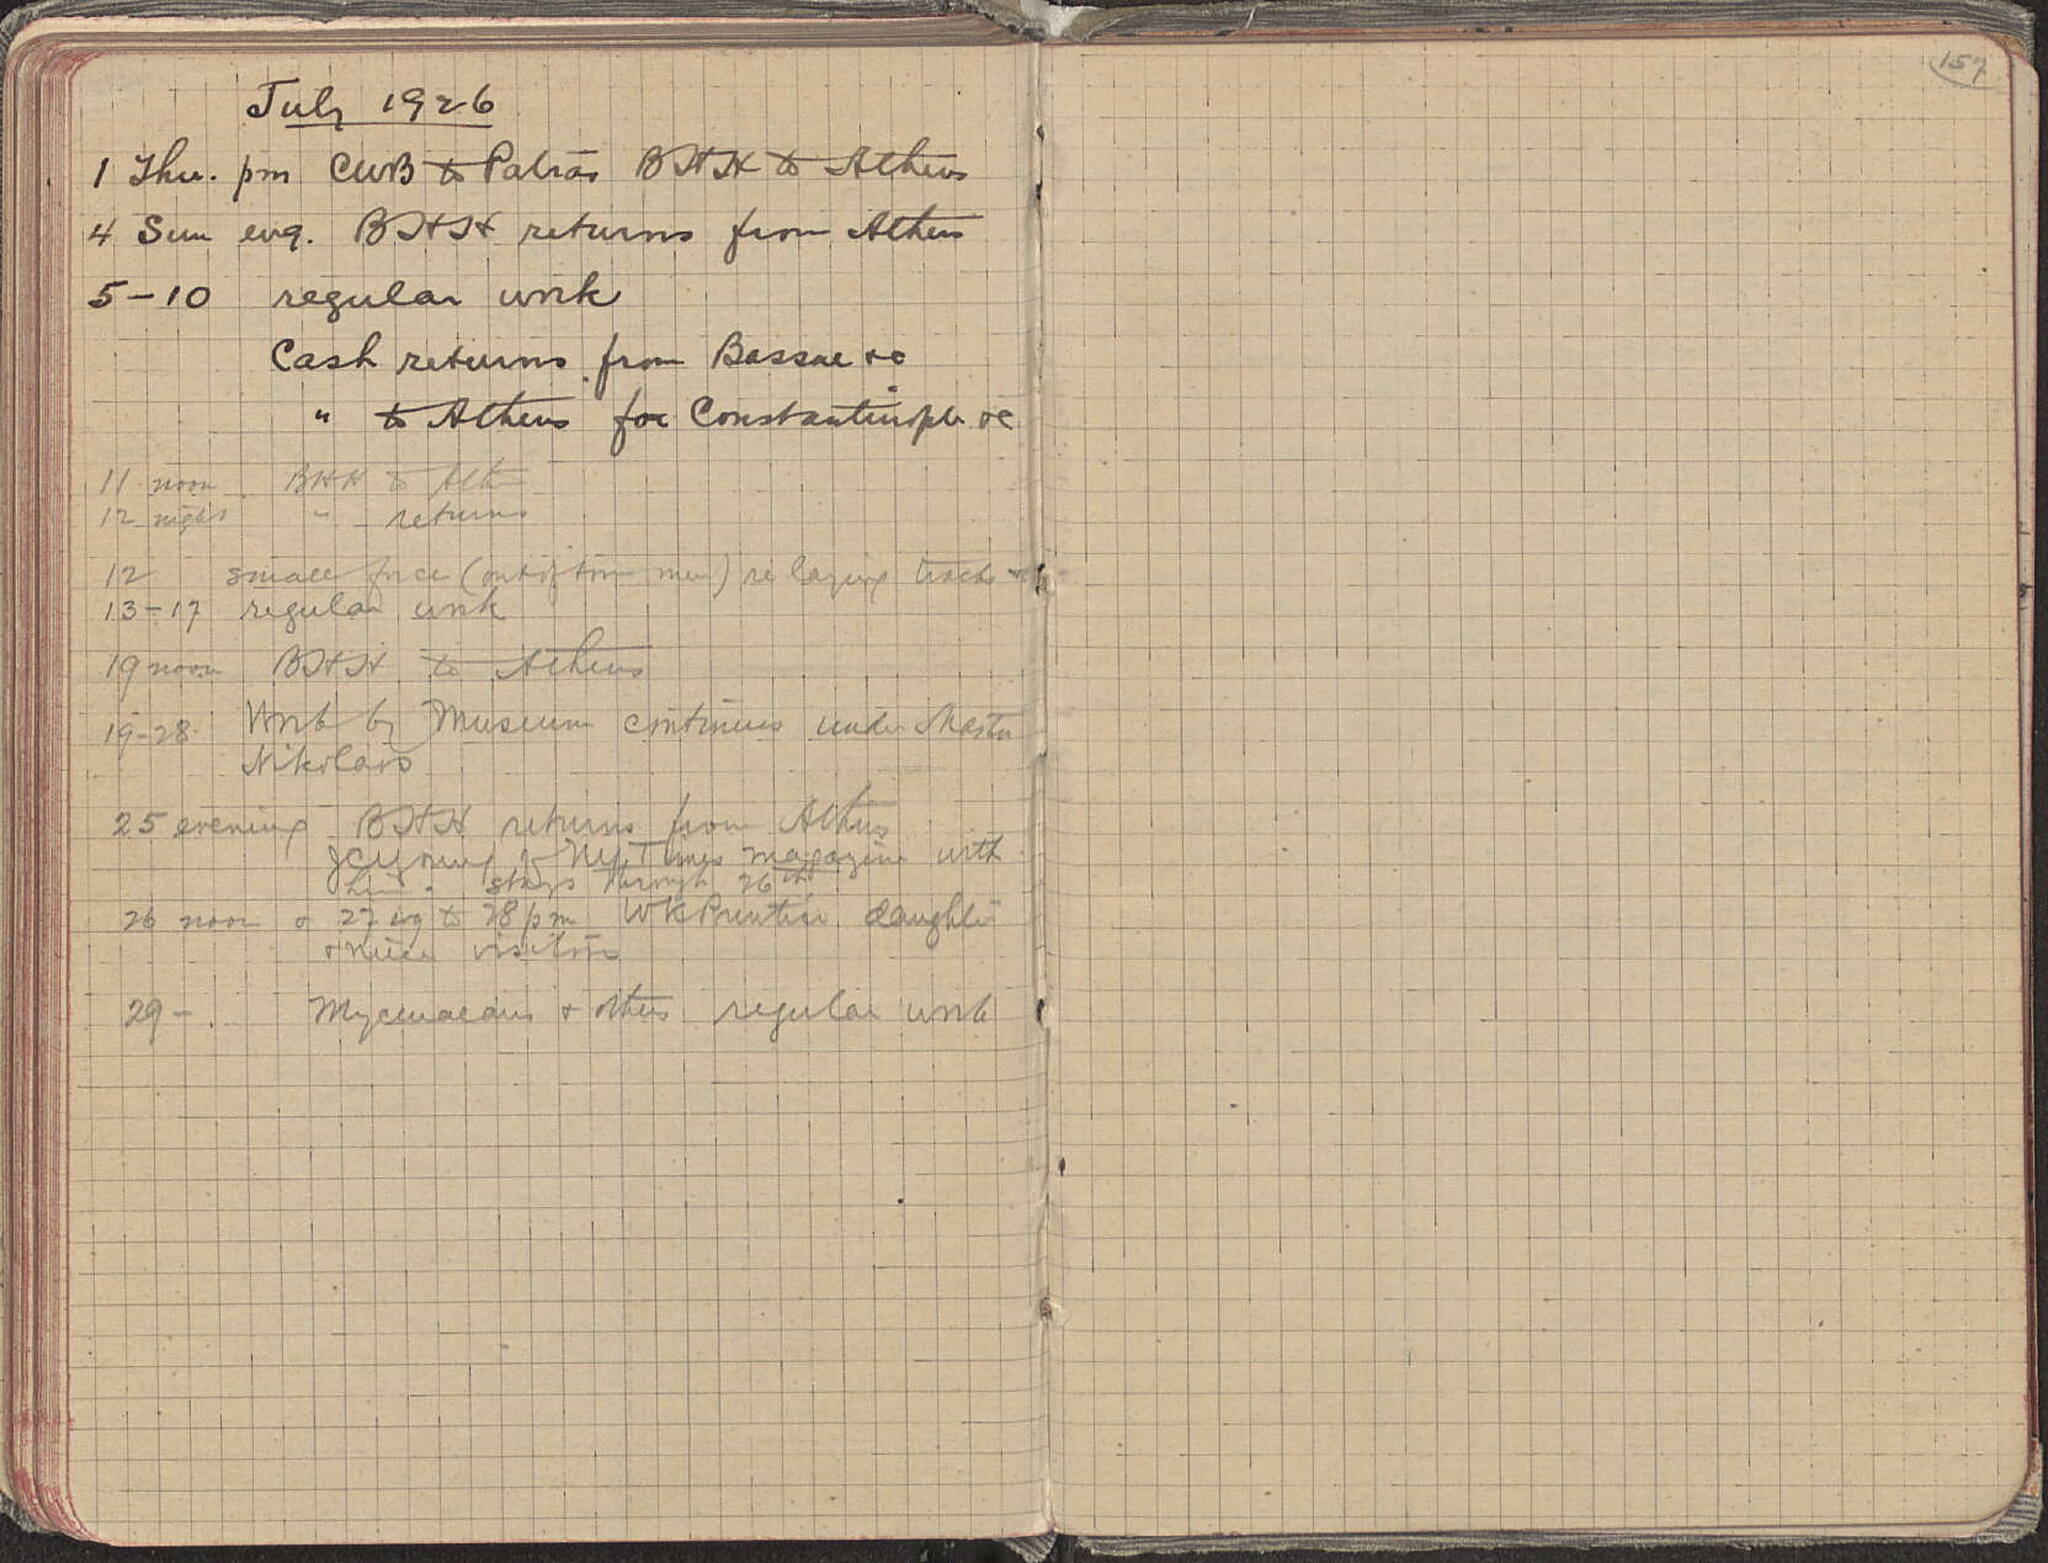 July 1926
1 Thu. pm CWB to Patras BHH to Athens
4 Sun evg. BHH returns from Athens
5-10 regular work
Cash returns from Bassae &c
" to Athens for Constantinople &c
11 noon BHH to Ath
12 night " returns
12 small force (out of town men) relaying track &
13-17 regular work
19 noon BHH to Athens
19-28 Work by Museum continues under Master
Nikolaos
25 evening BHH returns from Athens
JCYoung of NY Times magazine with
him. stays through 26th
26 noon & 27 evg to 28 pm WK Prentice daughter
& niece visitors
29- Mycenaeans & others regular work
157